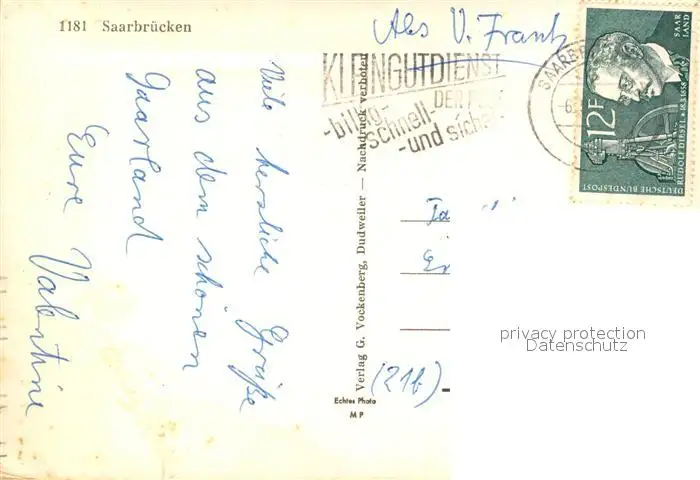 1181 Saarbrücken
Abs V. Frantz
KLEINGUTDIENST
DER POST
-billig-
schnell-
-und sicher
SAARBR
12F
SAAR
LAND
RUDOLF DIESEL * 18.3.1858
DEUTSCHE BUNDESPOST
Viele herzliche Grüße
aus dem schönen
Saarland
Eure Valentine
Verlag G. Vockenberg, Dudweiler — Nachdruck verboten
(21b)
Echtes Photo
M P
privacy protection
Datenschutz